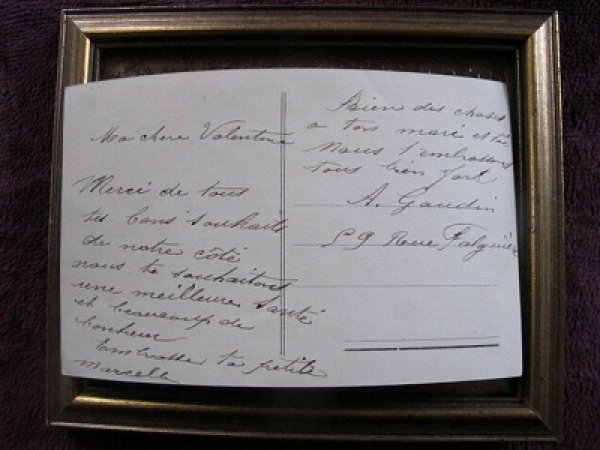 Ma chere Valentine
Merci de tous
tes bons souhaits
de notre côté
nous te souhaitons
une meilleure santé
et beaucoup de
bonheur
Embrasse ta petite
Marcelle
Bien des choses
a ton mari et
nous t'embrassons
tous bien fort
A. Gaudin
59 Rue Falguière